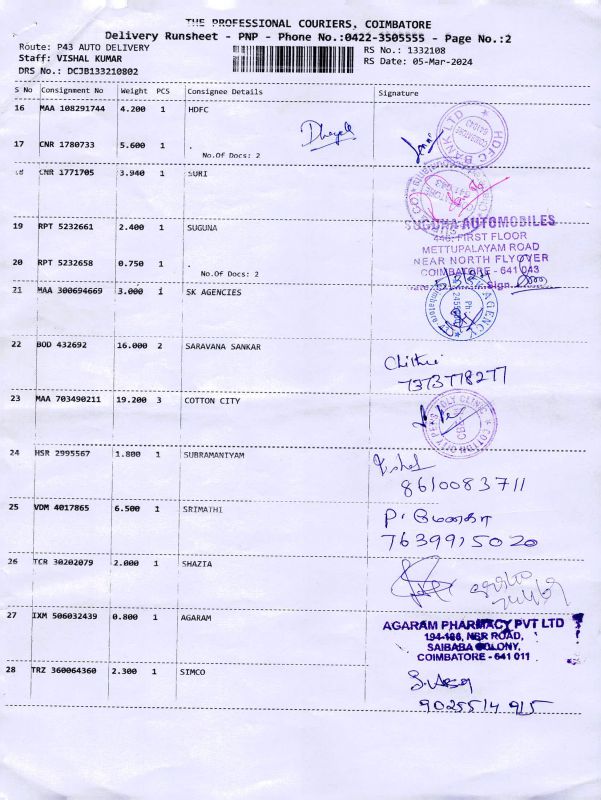 THE PROFESSIONAL COURIERS, COIMBATORE
Delivery Runsheet - PNP - Phone No.:0422-3505555 - Page No.:2
Route: P43 AUTO DELIVERY
RS No.: 1332108
Staff: VISHAL KUMAR
RS Date: 05-Mar-2024
DRS No.: DCJB133210802
S No Consignment No Weight PCS Consignee Details Signature
16 MAA 108291744 4.200 1 HDFC
HDFC BANK LTD
17 CNR 1780733 5.600 1 .
No.Of Docs: 2
18 CNR 1771705 3.940 1 SURI
19 RPT 5232661 2.400 1 SUGUNA
SUGUNA AUTOMOBILES
446, FIRST FLOOR
METTUPALAYAM ROAD
NEAR NORTH FLYOVER
COIMBATORE - 641 043
20 RPT 5232658 0.750 1 .
No.Of Docs: 2
Sign
21 MAA 300694669 3.000 1 SK AGENCIES
22 BOD 432692 16.000 2 SARAVANA SANKAR
7373778277
23 MAA 703490211 19.200 3 COTTON CITY
24 HSR 2995567 1.800 1 SUBRAMANIYAM
Vishal
8610083711
25 VDM 4017865 6.500 1 SRIMATHI
P. மேனகா
7639915020
26 TCR 30202079 2.000 1 SHAZIA
27 IXM 506032439 0.800 1 AGARAM
AGARAM PHARMACY PVT LTD
194-196, NSR ROAD,
SAIBABA COLONY,
COIMBATORE - 641 011
28 TRZ 360064360 2.300 1 SIMCO
9025514915